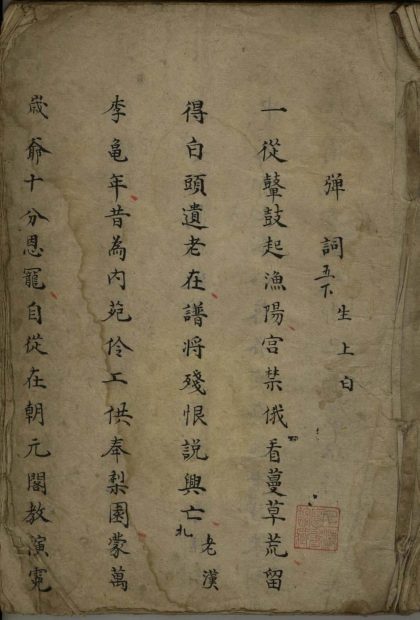 弹詞 五下 生上白
一從鼙鼓起漁陽宫禁俄看蔓草荒留
得白頭遺老在譜將殘恨説興亡 老漢
李龜年昔為内苑伶工供奉梨園蒙萬
歲爺十分恩寵自從在朝元閣教演霓